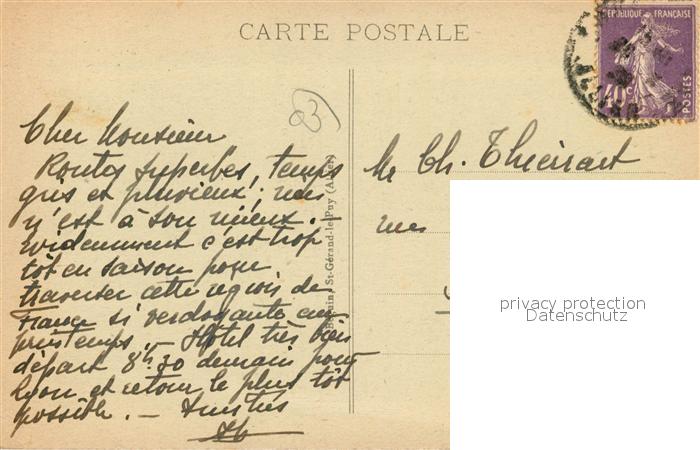 CARTE POSTALE
REPUBLIQUE FRANÇAISE
40c
POSTES
83
Cher Monsieur
Routes superbes, temps
gris et pluvieux; rien
n'est à son mieux. –
Evidemment c'est trop
tôt en saison pour
traverser cette région de
France si verdoyante au
printemps. – Hôtel très bien
départ 8h30 demain pour
Lyon et retour le plus tôt
possible. – Amitiés
St-Gérand-le-Puy (Allier)
Mr Ch.
rue
privacy protection
Datenschutz